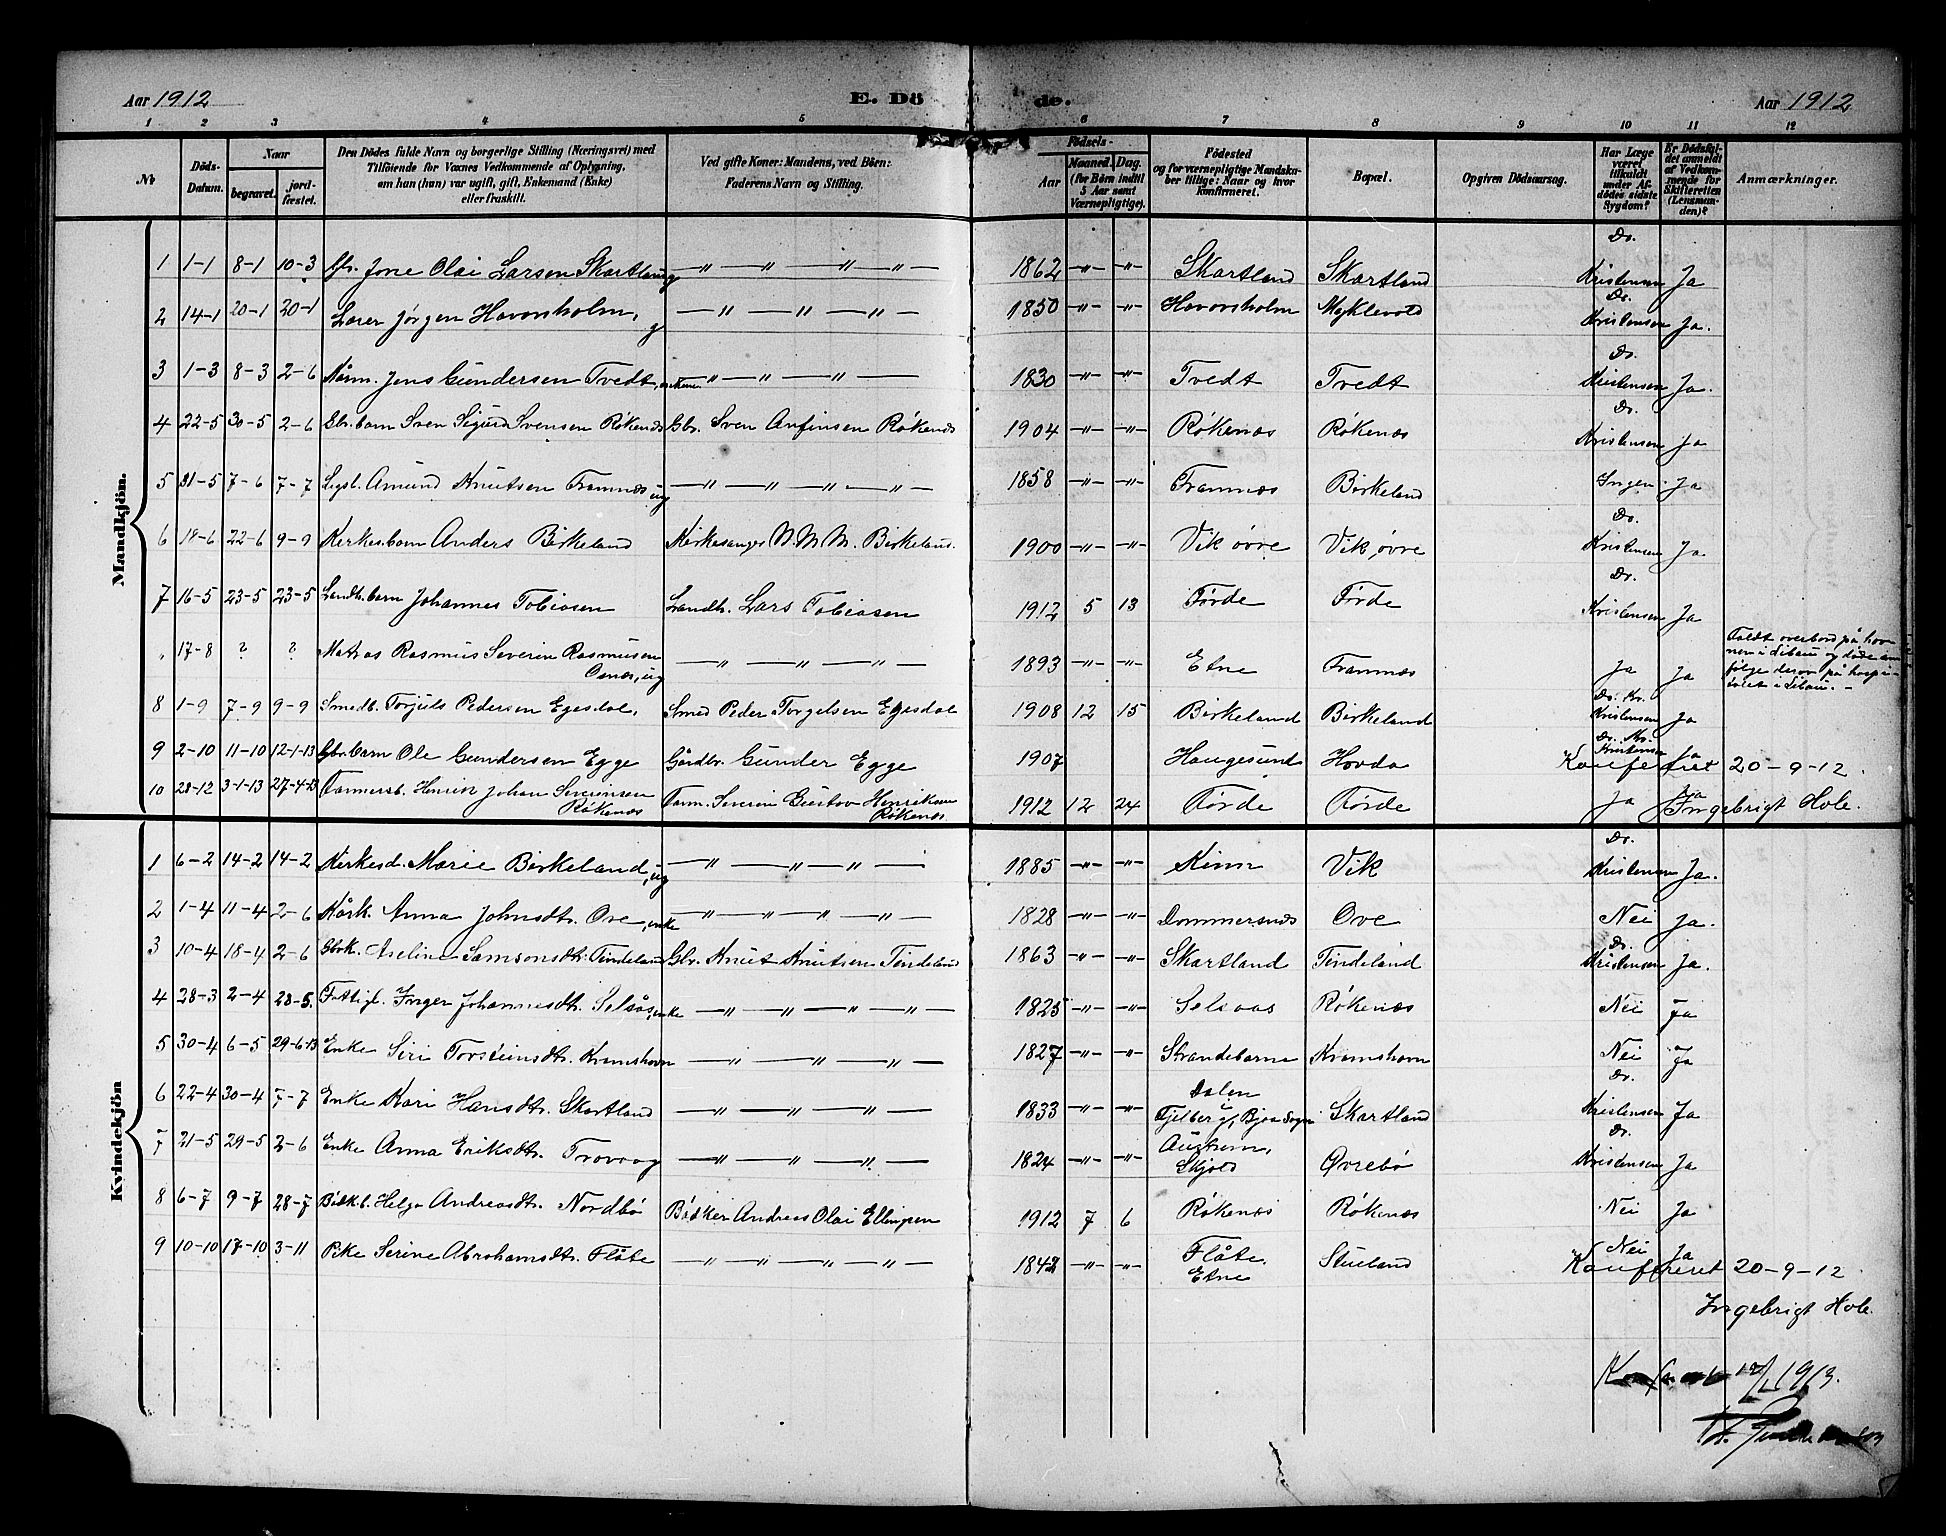 Aar 1912 E. Dö de. Aar 1912
1 2 3 4 5 6 7 8 9 10 11 12
№ Döds-Datum. Naar begravet. jordfæstet. Den Dödes fulde Navn og borgerlige Stilling (Næringsvei) med Tilföiende for Voxnes Vedkommende af Oplysning, om han (hun) var ugift, gift, Enkemand (Enke) eller fraskilt. Ved gifte Koner: Mandens, ved Börn: Faderens Navn og Stilling. Födsels- Aar Maaned. Dag. (for Börn indtil 5 Aar samt Værnepligtige). Födested og for værnepligtige Mandskaber tillige: Naar og hvor konfirmeret. Bopæl. Opgiven Dödsaarsag. Har Læge været tilkaldt under Afdödes sidste Sygdom? Er Dödsfaldet anmeldt af Vedkommende for Skifteretten (Lensmanden)? Anmærkninger.
Mandkjön.
1 1-1 8-1 10-3 Gbr. Jone Olai Larsen Skartland, g —〃—〃—〃—〃— 1862 -〃- -〃- Skartland Skartland Dr. Kristensen Ja
2 14-1 20-1 20-1 Lærer Jørgen Hovorsholm, g —〃—〃—〃— 1850 -〃- -〃- Hovorsholm Myklevold Dr. Kristensen Ja.
3 1-3 8-3 2-6 Kårm. Jens Gundersen Tvedt, enkem. —〃—〃—〃— 1830 -〃- -〃- Tvedt Tvedt Dr. Kristensen Ja.
4 22-5 30-5 2-6 Gbr.barn Sven Sigurd Svensen Røkenes Gbr. Sven Anfinsen Røkenes 1904 -〃- -〃- Røkenæs Røkenæs Dr. Kristensen Ja
5 31-5 7-6 7-7 Legsl. Amund Knutsen Framnæs, ug —〃—〃—〃—〃— 1858 -〃- -〃- Framnæs Birkeland Ingen Ja
6 18-6 22-6 9-9 Kirkes.barn Anders Birkeland Kirkesanger N. M. M. Birkeland. 1900 -〃- -〃- Vik øvre Vik øvre Dr. Kristensen Ja
7 16-5 23-5 23-5 Landh.barn Johannes Tobiasen Landh. Lars Tobiasen 1912 5 13 Førde Førde Dr. Kristensen Ja
〃 17-8 ? ? Matros Rasmus Severin Rasmusen Osnes, ug —〃—〃—〃— 1893 -〃- -〃- Etne Framnæs Ja Ja Faldt overbord på havnen i Libau og døde som følge derav på hospitalet i Libau. -
8 1-9 7-9 9-9 Smedb. Torjuls Pedersen Egesdal, Smed Peder Torgelsen Egesdal 1908 12 15 Birkeland Birkeland Dr. Kr. Kristensen Ja
9 2-10 11-10 12-1-13 Gbr.barn Ole Gundersen Egge Gårdbr. Gunder Egge 1907 Haugesund Hovda Dr. Kr. Kristensen Ja
Konfereret 20-9-12
10 28-12 3-1-13 27-4-13 Tømmersb. Henrik Johan Severinsen Røkenæs Tøm. Severin Gustav Henriksen Røkenæs 1912 12 24 Førde Førde Ja Ja Ingebrigt Hole.
Kvindekjön
1 6-2 14-2 14-2 Kirkesd. Marie Birkeland, ug —〃—〃—〃— 1885 -〃- -〃- Kinn Vik Dr. Kristensen Ja.
2 1-4 11-4 2-6 Kårk. Anna Johnsdtr. Ove, enke —〃—〃—〃— 1828 -〃- -〃- Dommersnæs Ove Nei Ja.
3 10-4 18-4 2-6 Gbrk. Aseline Samsonsdtr. Tindeland Gbr. Knut Knutsen Tindeland 1863 -〃- -〃- Skartland Tindeland Dr. Kristensen Ja.
4 28-3 2-4 28-5. Fattigl. Inger Johannesdtr. Selsås, enke —〃—〃—〃—〃— 1825 -〃- -〃- Selsaas Røkenæs Nei Ja
5 30-4 6-5 29-6-13 Enke Siri Torsteinsdtr. Kramshavn —〃—〃—〃— 1827 -〃- -〃- Strandebarm Kramshavn Nei Ja
6 22-4 30-4 7-7 Enke Kari Hansdtr. Skartland —〃—〃—〃— 1833 -〃- -〃- Dalen i Fjelberg, Bjoa Sogn Skartland Dr. Kristensen Ja
7 21-5 29-5 2-6 Enke Anna Eriksdtr. Trovaag —〃—〃—〃— 1824 -〃- -〃- Skjold Øvrebø Dr. Kristensen Ja
8 6-7 9-7 28-7 Bødk.b. Helga Andreasdtr. Nordbø Bødker Andreas Olai Ellingsen 1912 7 6 Røkenæs Røkenæs Nei Ja
9 10-10 17-10 3-11 Pike Serine Abrahamsdtr. Flåte —〃—〃—〃—〃— 1842 -〃- -〃- Flåte, Etne Stueland Nei Ja
Konfereret 20-9-12
Ingebrigt Hole.
12/1 1913.